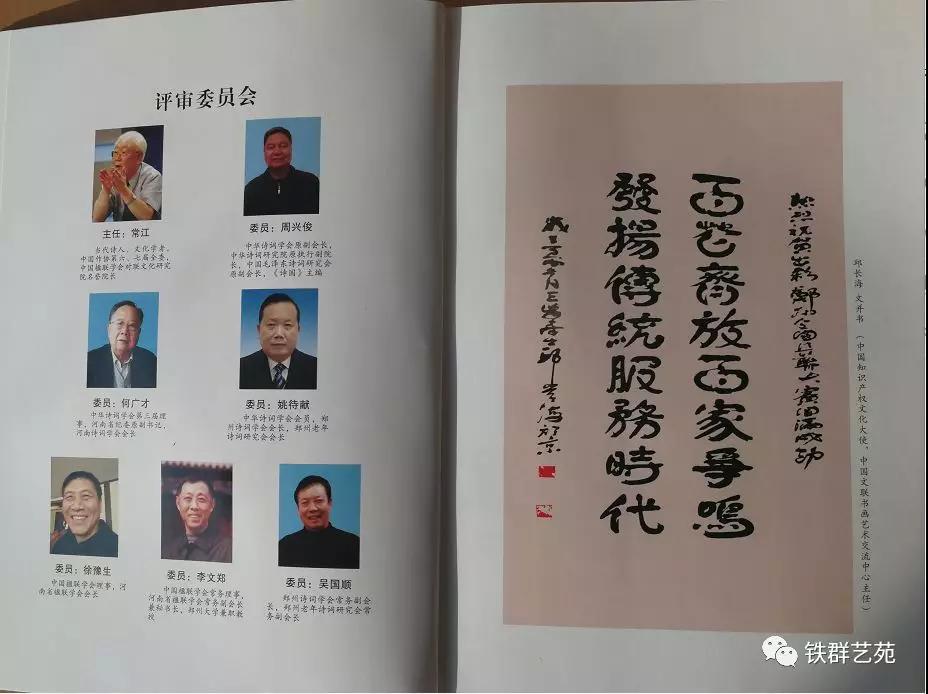 评审委员会
主任：常江
当代诗人、文化学者，
中国作协第六、七届全委，
中国楹联学会对联文化研究
院名誉院长
委员：周兴俊
中华诗词学会原副会长，
中华诗词研究院原执行副院
长，中国毛泽东诗词研究会
原副会长，《诗国》主编
委员：何广才
中华诗词学会第三届理
事，河南省纪委原副书记，
河南诗词学会会长
委员：姚待献
中华诗词学会会员，郑
州诗词学会会长，郑州老年
诗词研究会会长
委员：徐豫生
中国楹联学会理事，河
南省楹联学会会长
委员：李文郑
中国楹联学会常务理事，
河南省楹联学会常务副会长
兼秘书长，郑州大学兼职教
授
委员：吴国顺
郑州诗词学会常务副会
长，郑州老年诗词研究会常
务副会长
热烈祝贺出彩郑州全国诗联大赛圆满成功
百花齊放百家爭鳴
發揚傳統服務時代
邱长海 文并书（中国知识产权文化大使、中国文联书画艺术交流中心主任）
铁群艺苑